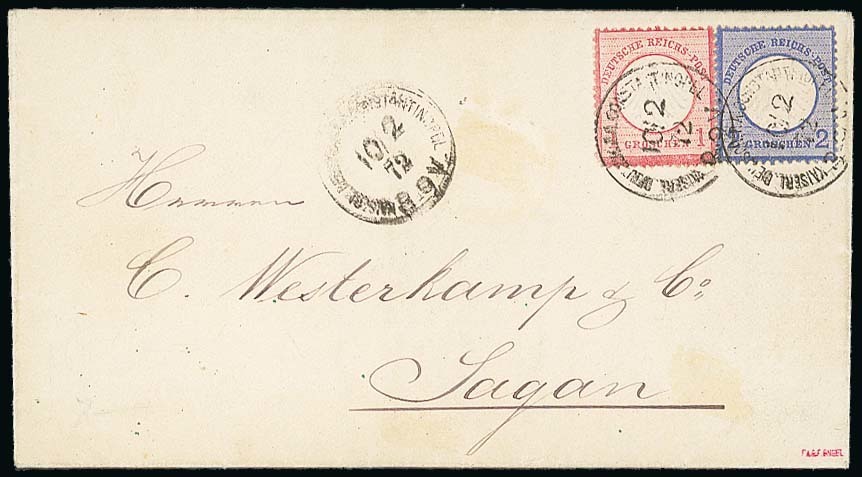 DEUTSCHE REICHS-POST
1 GROSCHEN 1
DEUTSCHE REICHS-POST
2 GROSCHEN 2
KAISERL. CONSTANTINOPEL
10 2
72
KAISERL. CONSTANTINOPEL
10 2
72
KAISERL. CONSTANTINOPEL
10 2
72
8-9V
Herren
C. Westerkamp & Co.
Sagan